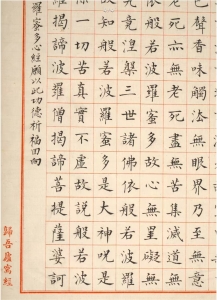 色聲香味觸法無眼界乃至無意
老死亦無老死盡無苦集滅道無
依般若波羅蜜多故心無罣礙無
究竟涅槃三世諸佛依般若波羅
故知般若波羅蜜多是大神咒是
除一切苦真實不虛故說般若波
羅揭諦波羅僧揭諦菩提薩婆訶
羅蜜多心經願以此功德祈福回向
歸吾廬寫經